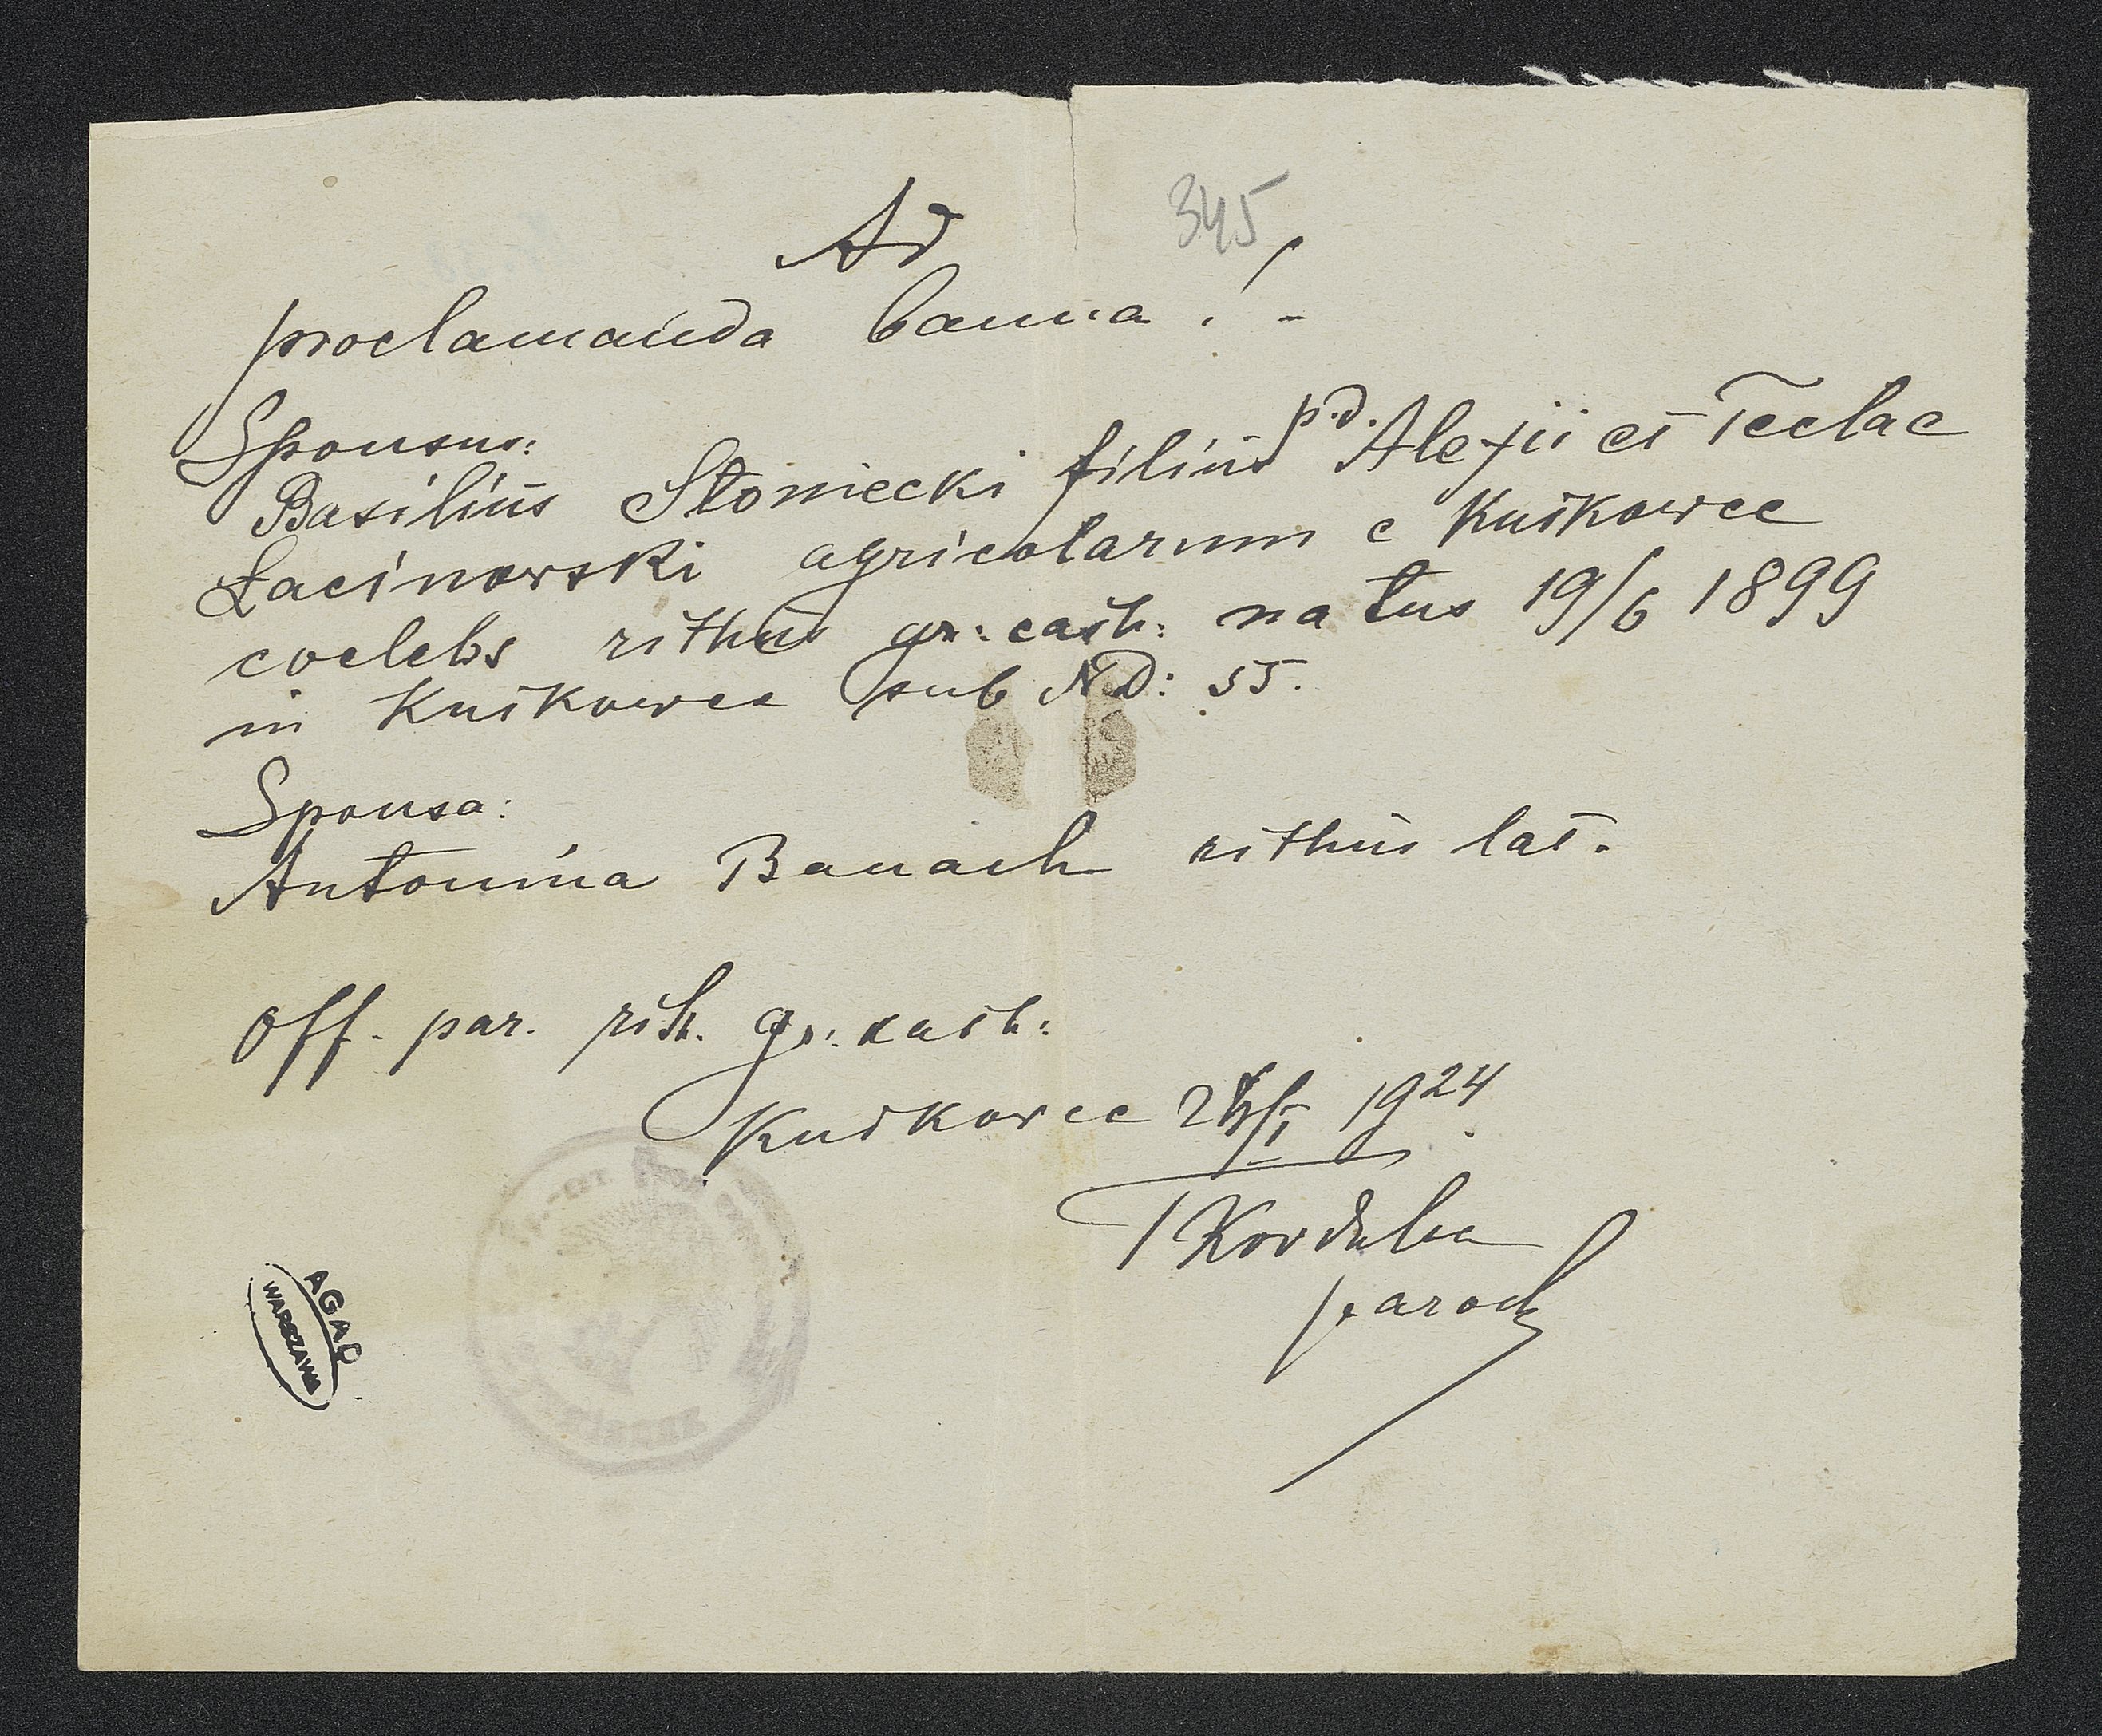 345
Ad
proclamanda banna! -
Sponsus:
Basilius Słoniecki filius p.d. Alexii et Teclae
Łacinowski agricolarum e Kutkowce
coelebs rithus gr: cath: natus 19/6 1899
in Kutkowce sub ND: 55.
Sponsa:
Antonina Banach rithus lat.
Off. par. rit. gr: cath:
Kutkowce 1924
Korduba
paroch
AGAD
WARSZAWA